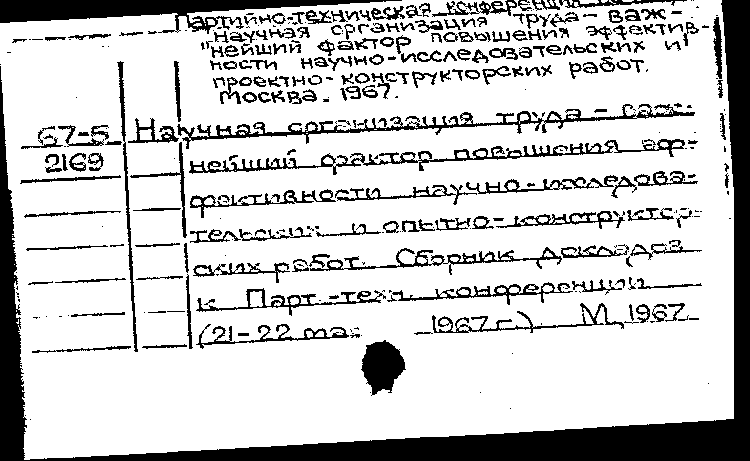 Партийно-техническая конференция
"Научная организация труда - важ-
"нейший фактор повышения эффектив-
ности научно-исследовательских и
проектно-конструкторских работ.
Москва. 1967.
67-5 Научная организация труда - важ-
2169 нейший фактор повышения эф-
фективности научно-исследова-
тельских и опытно-конструктор-
ских работ. Сборник докладов
к Парт.-техн. конференции
(21-22 мая 1967 г.) М, 1967